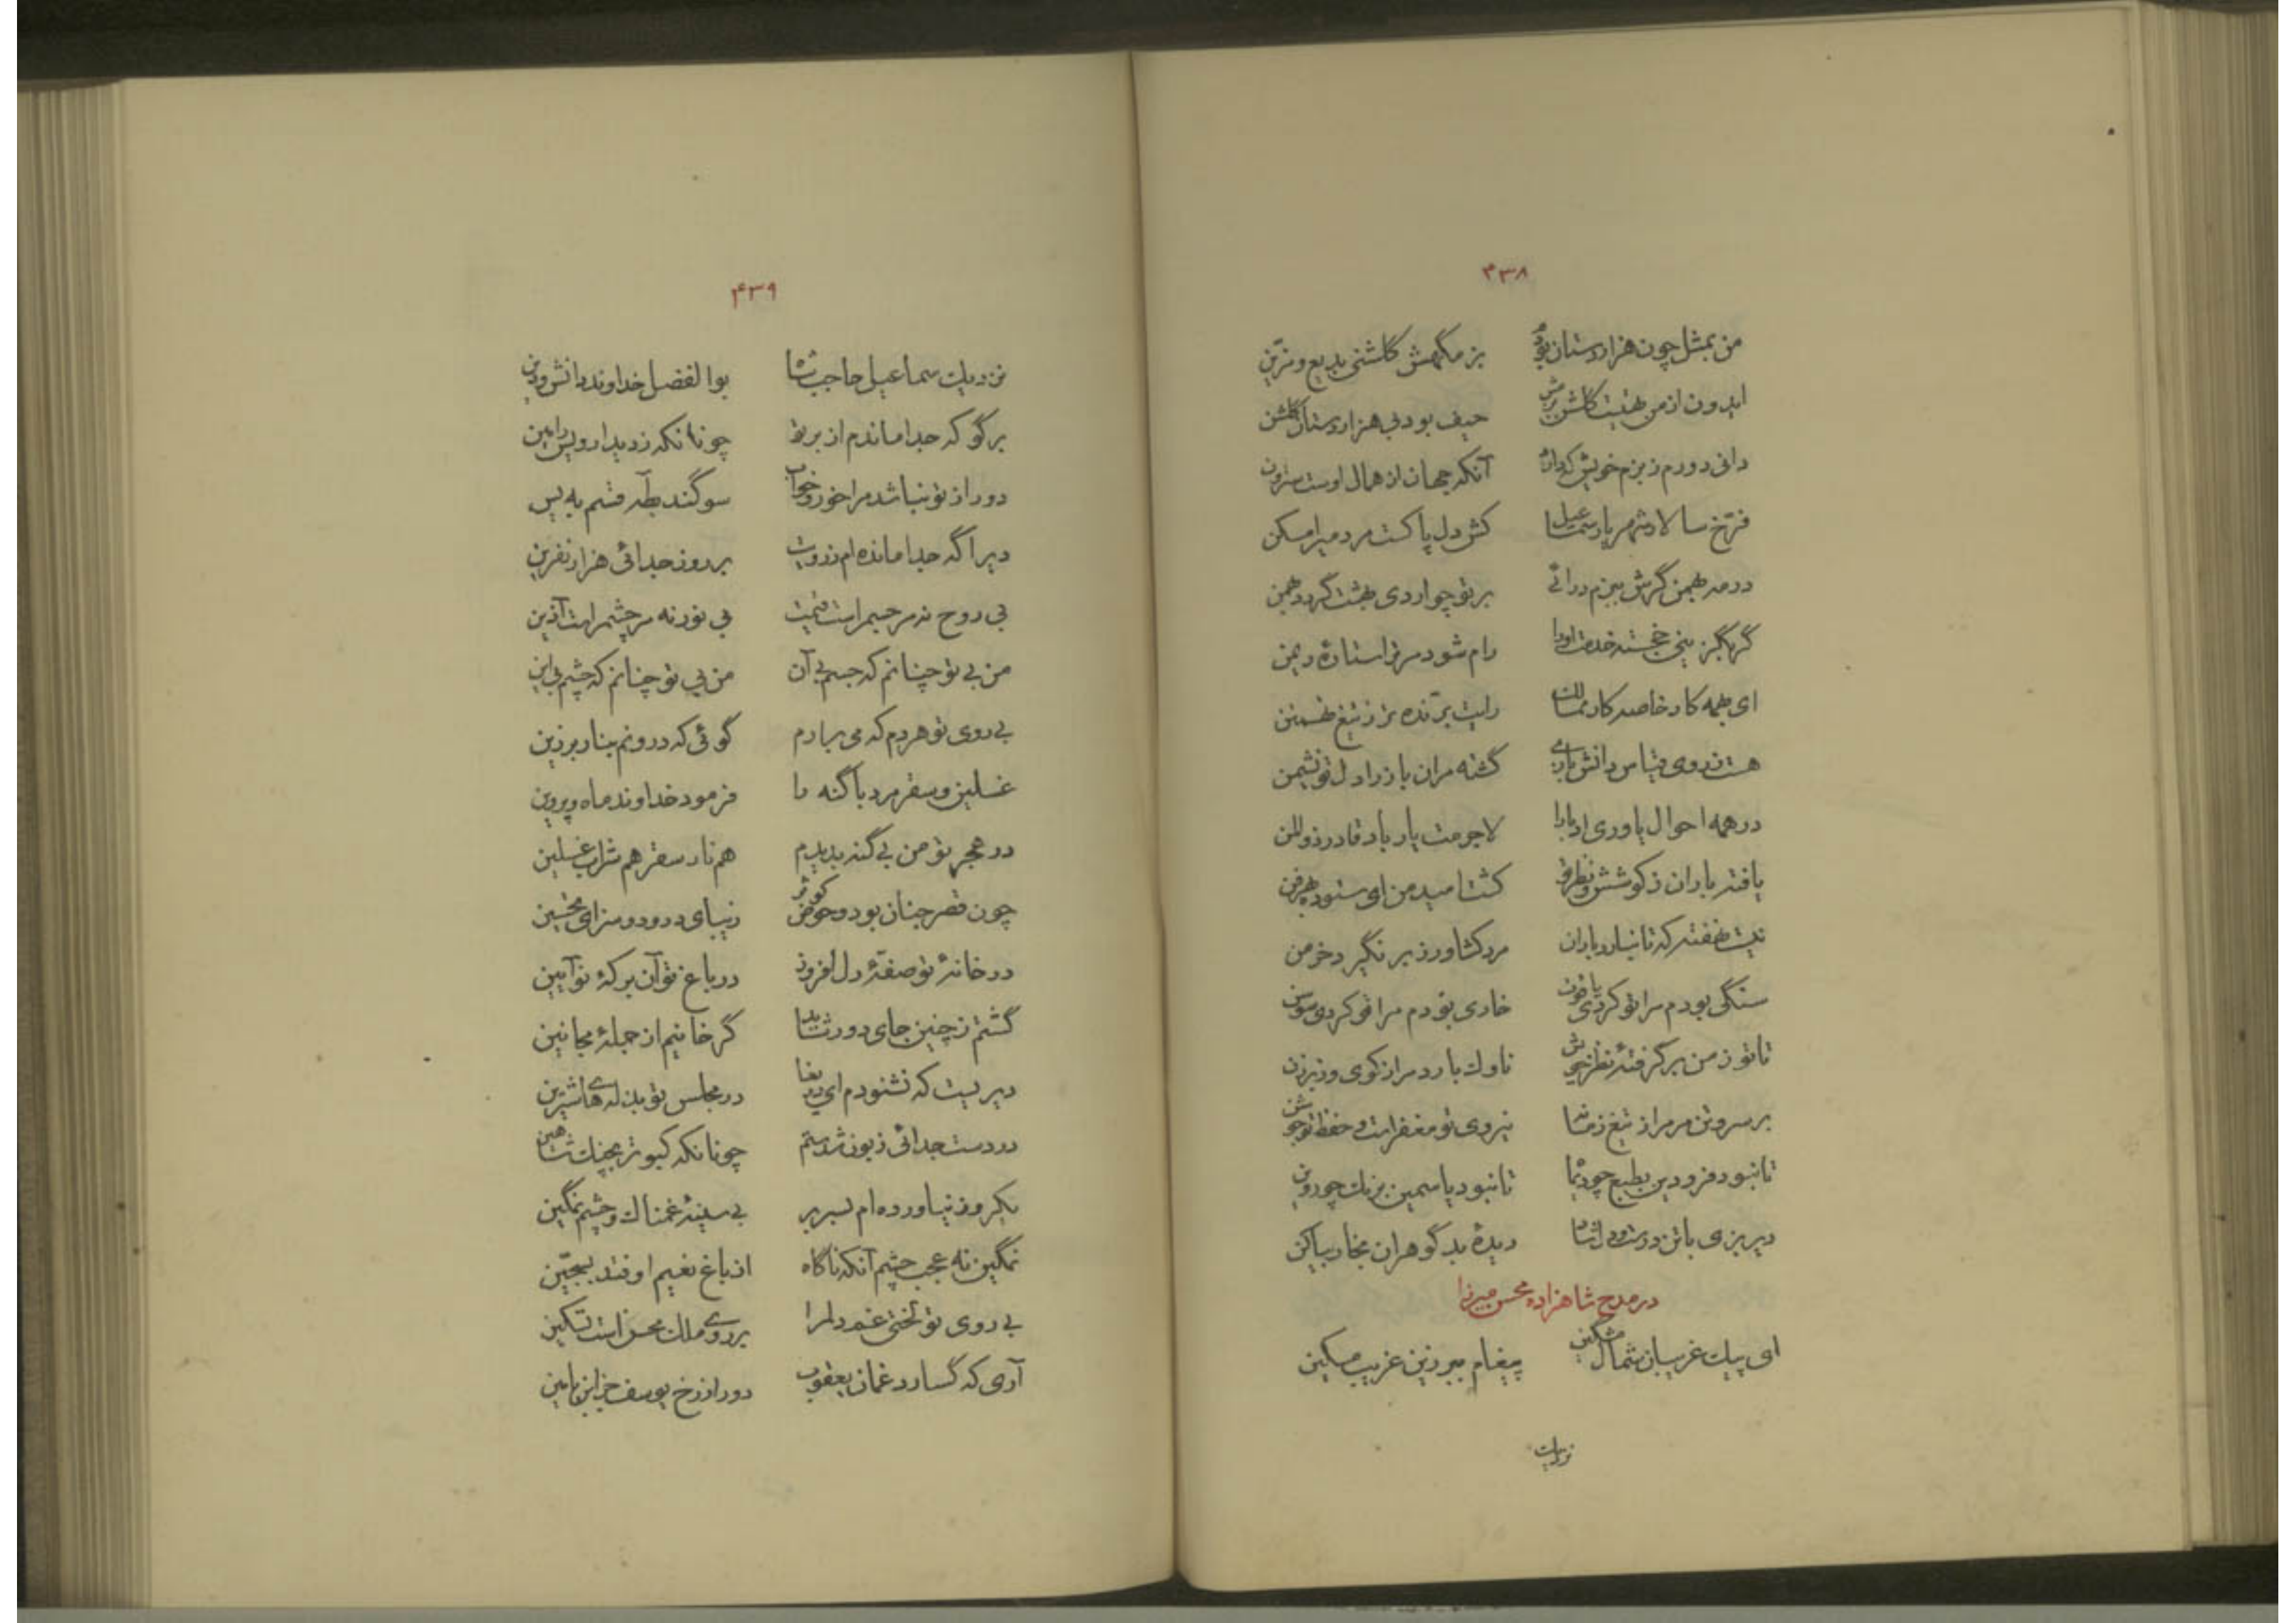 ۴۳۸
من بمثل چون هزاردستان بودم بزمگهش گلشنی بدیع و مزین
ایدون از من تهیست گلشن بزمش حیف بود بی هزاردستان گلشن
دانی دورم ز بزم خویش که دارد آنکه جهان از همال اوست سترون
فرّخ سالار شهریار سمعیل کش دل پاکست مردمی را مسکن
در مه بهمن گرش ببزم درائی بر تو چو اردی بهشت گردد بهمن
گر بگزینی خجسته خدمت او را رام شود مر ترا ستارهٔ ریمن
ای همه کار خاصه کار ممالک رایت برّنده تر ز تیغ تهمتن
هست ز روی قیاس دانش بازی گشته مر آن باز را دل تو نشیمن
در همه احوال یاوری ادبا را لاجرمت یار باد قادر ذوالمن
یافته باران ز کوشش و نظر تو کشت امید من ای ستوده بهر فن
نیست نهفته که تا نبارد باران مرد کشاورز بر نگیرد خرمن
سنگی بودم مرا تو کردی یاقوت خاری بودم مرا تو کردی سوسن
تا تو ز من برگرفتهٔ نظر خویش ناوک بارد مرا ز کوی و ز برزن
بر سر و تن مر مرا ز تیغ زمانه نیروی تو مغفر است و حفظ تو جوشن
تا نبود فرودین بطبع چو دیماه تا نبود یاسمین برنگ چو روین
دیر بزی با تن درست و دل شاد دیدهٔ بدگوهران بخار بیاکن
در مدح شاهزاده محسن میرزا
ای پیک غریبان شمال مشکین پیغام ببر زین غریب مسکین
نزدیک
۴۳۹
نزدیک سماعیل حاجب شاه بوالفضل خداوند دانش و دین
برگو که جدا ماندم از بر تو چونانکه ز دیدار ویس رامین
دور از تو نباشد مرا خور و خواب سوگند بطه قسم به یس
دیر اگه جدا مانده ام ز رویت بر روز جدائی هزار نفرین
بی روح نه مر جسم راست قیمت بی نور نه مر چشم راست آذین
من بی تو چنانم که جسم بی آن من بی تو چنانم که چشم بی این
بی روی تو هر دم که می برآرم گوئی که درونم بنار برزین
غسلین و سقر مرد با گنه را فرمود خداوند ماه و پروین
در هجر تو من بی گنه بدیدم هم نار سقر هم شراب غسلین
چون قصر جنان بود و حوض کوثر زیبای درود و سزای تحسین
در خانهٔ تو صفهٔ دل افروز در باغ تو آن برکهٔ نو آیین
گشتم ز چنین جای دور شاید گر خانیم از جملهٔ مجانین
دیریست که نشنودم ای دریغا در مجلس تو بذله های شیرین
در دست جدائی زبون شدستم چونانکه کبوتر بچنگ شاهین
یک روز نیاورده ام بسر بر بی سینهٔ غمناک و چشم نمگین
نمگین نه عجب چشم آنکه ناگاه از باغ نعیم اوفتد بسجّین
بی روی تو لختی غم دلم را بر روی ملک محسن است تسکین
آری که گسارد غمان یعقوب دور از رخ یوسف جز ابن یامین